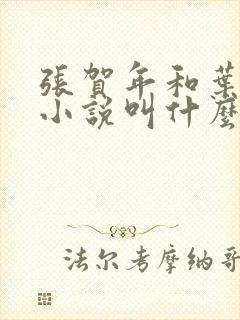 張賀年和葉
小説叫什麼
法尔考摩纳哥